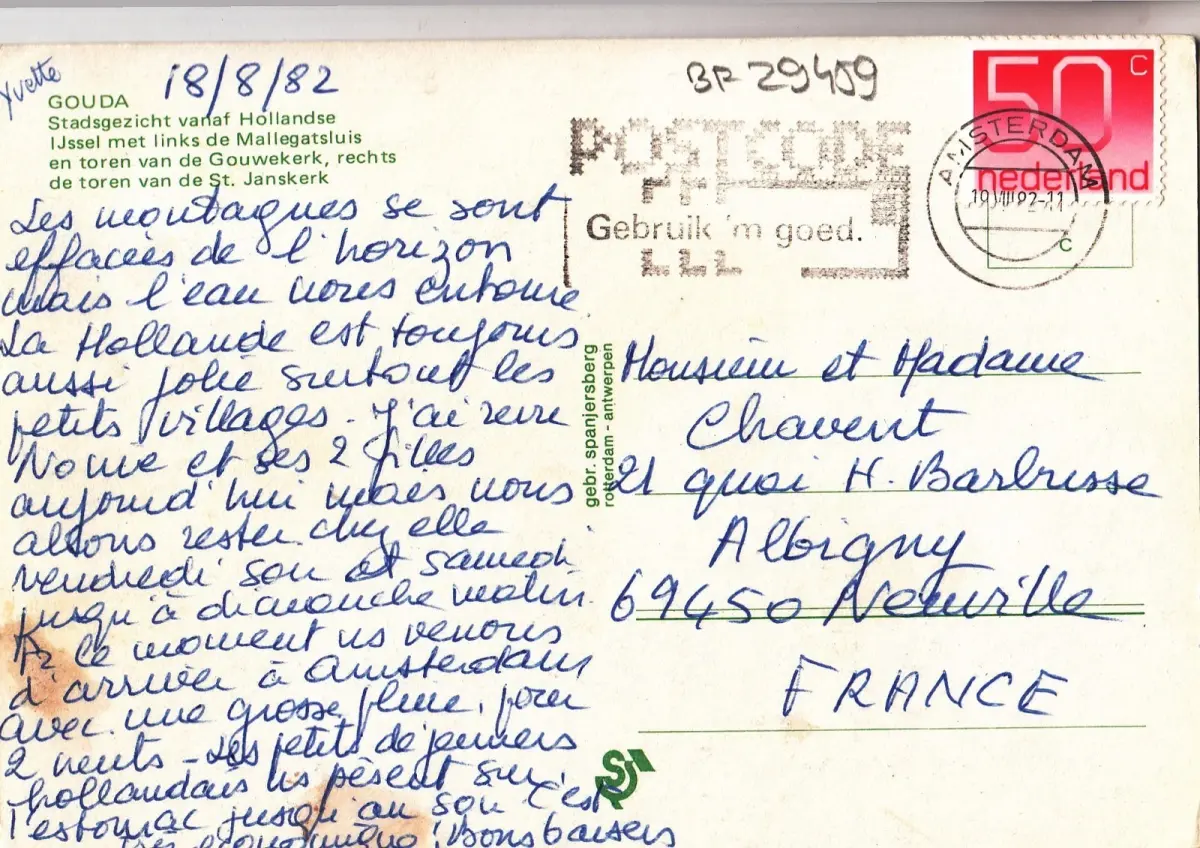 Yvette
18/8/82
GOUDA
Stadsgezicht vanaf Hollandse
IJssel met links de Mallegatsluis
en toren van de Gouwekerk, rechts
de toren van de St. Janskerk
Les montagnes se sont
effacées de l'horizon
mais l'eau nous entoure
La Hollande est toujours
aussi jolie surtout les
petits villages - J'ai revu
et ses 2 filles
aujourd'hui mais nous
allons rester chez elle
vendredi soir et samedi
jusqu'à dimanche matin.
ce moment ns venons
d'arriver à Amsterdam
avec une grosse pluie, pour
2 nuits - Les petits déjeuners
hollandais ns pèsent sur
l'estomac jusqu'au soir c'est
très économique ! Bons baisers
BF 29409
POSTCODE
Gebruik 'm goed.
50 C
nederland
AMSTERDAM
19 VIII 82-11
C
gebr. spanjersberg
rotterdam - antwerpen
Monsieur et Madame
Chavent
21 quai H. Barbusse
Albigny
69450 Neuville
FRANCE